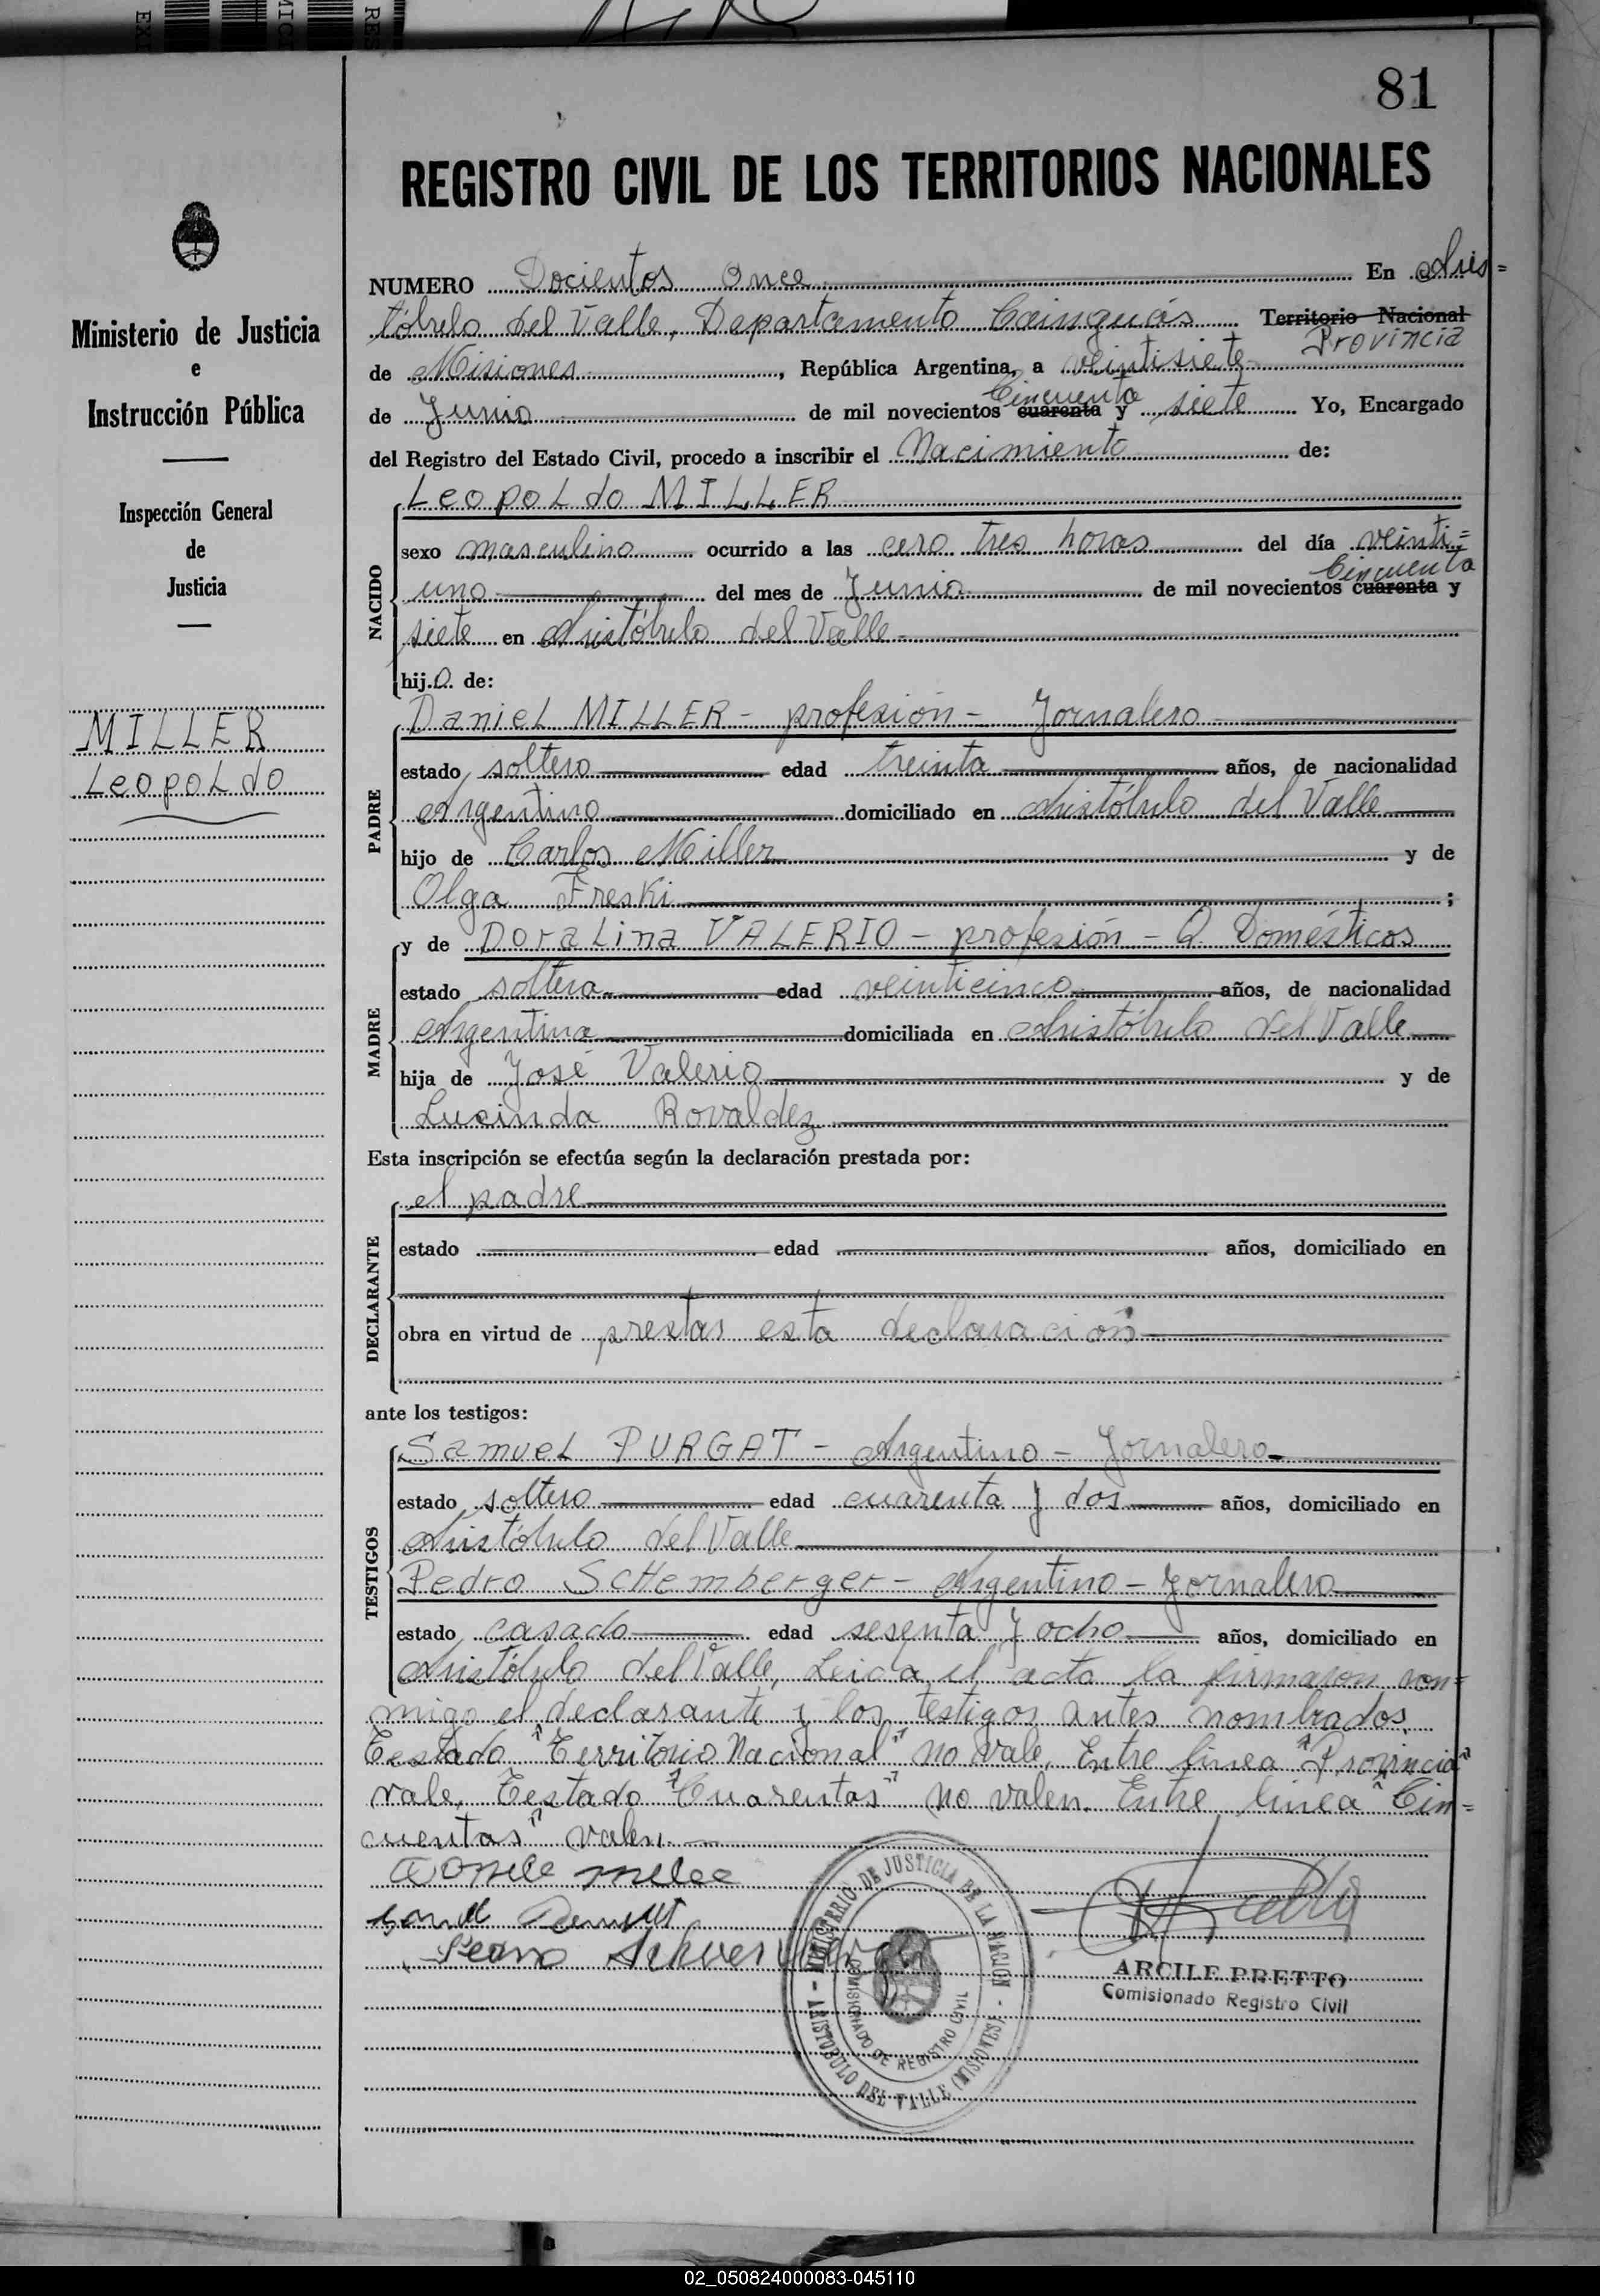 81
REGISTRO CIVIL DE LOS TERRITORIOS NACIONALES
Ministerio de Justicia
e
Instrucción Pública
Inspección General
de
Justicia
MILLER
Leopoldo
NUMERO Docientos Once En Aris=
tóbulo del Valle, Departamento Cainguás Territorio Nacional
Provincia
de Misiones, República Argentina, a veintisiete
Cincuenta
de Junio de mil novecientos cuarenta y siete Yo, Encargado
del Registro del Estado Civil, procedo a inscribir el Nacimiento de:
NACIDO
Leopoldo MILLER
sexo masculino ocurrido a las cero tres horas del día veinti=
Cincuenta
uno del mes de Junio de mil novecientos cuarenta y
siete en Aristóbulo del Valle-
hijo de:
PADRE
Daniel MILLER - profesión - Jornalero -
estado soltero edad treinta años, de nacionalidad
Argentino domiciliado en Aristóbulo del Valle
hijo de Carlos Miller y de
Olga Freski ;
MADRE
y de Doralina VALERIO - profesión - Q. Domésticos
estado soltera edad veinticinco años, de nacionalidad
Argentina domiciliada en Aristóbulo del Valle
hija de José Valerio y de
Lucinda Rovaldez
Esta inscripción se efectúa según la declaración prestada por:
DECLARANTE
el padre
estado edad años, domiciliado en
obra en virtud de prestar esta declaración
ante los testigos:
TESTIGOS
Samuel PURGAT - Argentino - Jornalero
estado soltero edad cuarenta y dos años, domiciliado en
Aristóbulo del Valle
Pedro SCHemberger - Argentino - Jornalero
estado casado edad sesenta y ocho años, domiciliado en
Aristóbulo del Valle, Leida el acta la firmaron con=
migo el declarante y los testigos antes nombrados.
Testado "Territorio Nacional" no vale, Entre linea "Provincia"
vale, Testado "Cuarentas" no valen. Entre linea "Cin=
cuentas" valen.
Pedro
MINISTERIO DE JUSTICIA DE LA NACION
COMISIONADO DE REGISTRO CIVIL
ARISTOBULO DEL VALLE (MISIONES)
ARCILE PRETTO
Comisionado Registro Civil
02_050824000083-045110